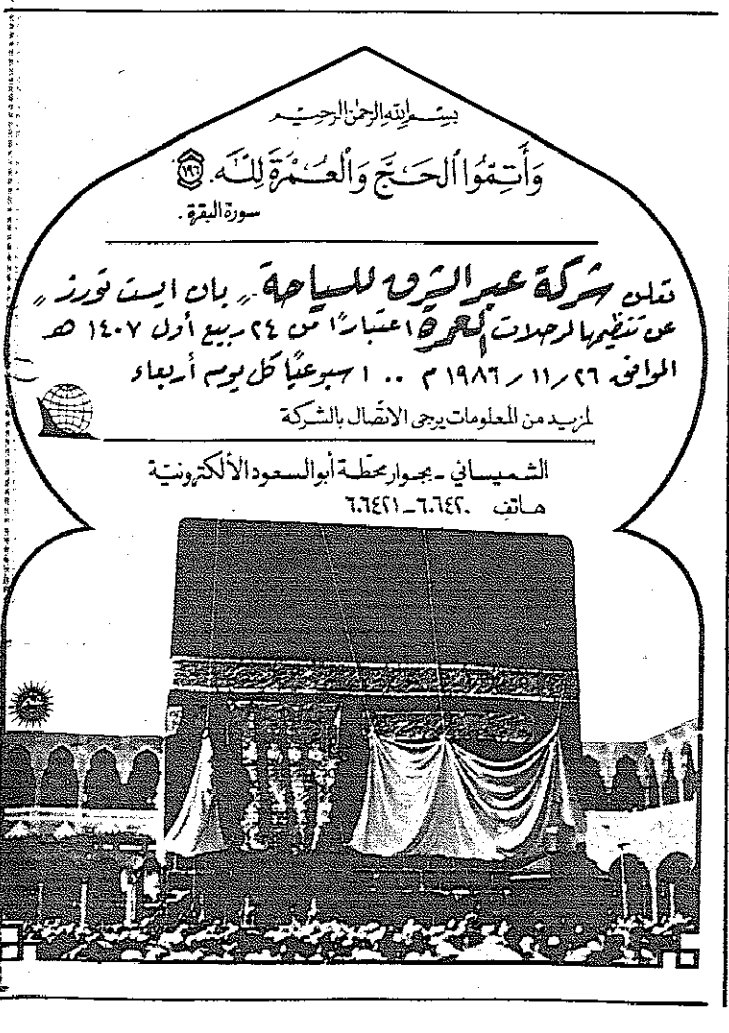 بسم الله الرحمن الرحيم
وَأَتِمُّوا ٱلْحَجَّ وَٱلْعُمْرَةَ لِلَّهِ. ١٩٦
سورة البقرة .
تعلن شركة عبر الشرق للسياحة .. " بان ايست تورز "
عن تنظيمها لرحلات العمرة اعتبارًا من ٢٤ ربيع أول ١٤٠٧ هـ
الموافق ٢٦ / ١١ / ١٩٨٦ م .. اسبوعيًا كل يوم أربعاء
لمزيد من المعلومات يرجى الاتصال بالشركة
الشميساني - بجوار محطة أبو السعود الألكترونية
هاتف ٦٠٦٤٢٠ - ٦٠٦٤٢١